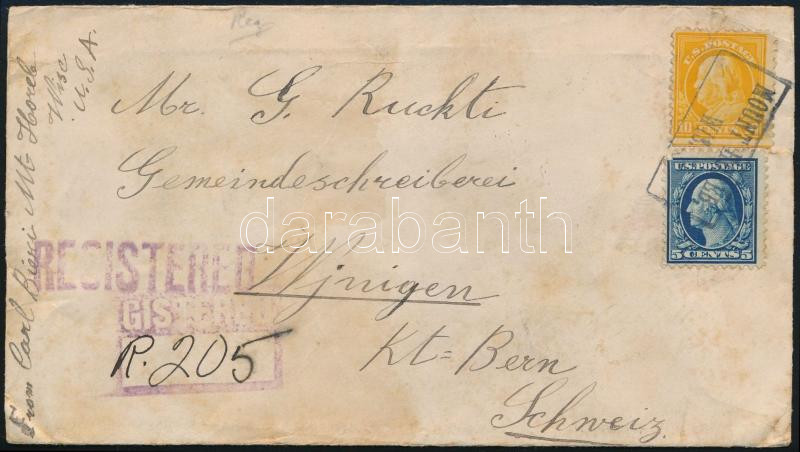 Reg
From Carl Bieri Mt Horeb
Wisc
U.S.A.
Mr. G. Ruchti
Gemeindeschreiberei
Wynigen
Kt= Bern
Schweiz.
REGISTERED
GISTERED
R. 205
U.S. POSTAGE
10 CENTS
U.S. POSTAGE
5 CENTS 5
MOUNT
WIS.
darabanth